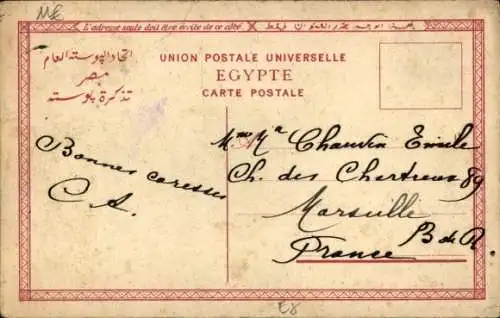 L'adresse seule doit être écrite de ce côté
اتحاد البوسته العام
مصر
تذكرة بوسته
UNION POSTALE UNIVERSELLE
EGYPTE
CARTE POSTALE
Bonnes caresses
C A.
Chauvin Emile
Ch. des Chartreux 89
Marseille
B du R
France